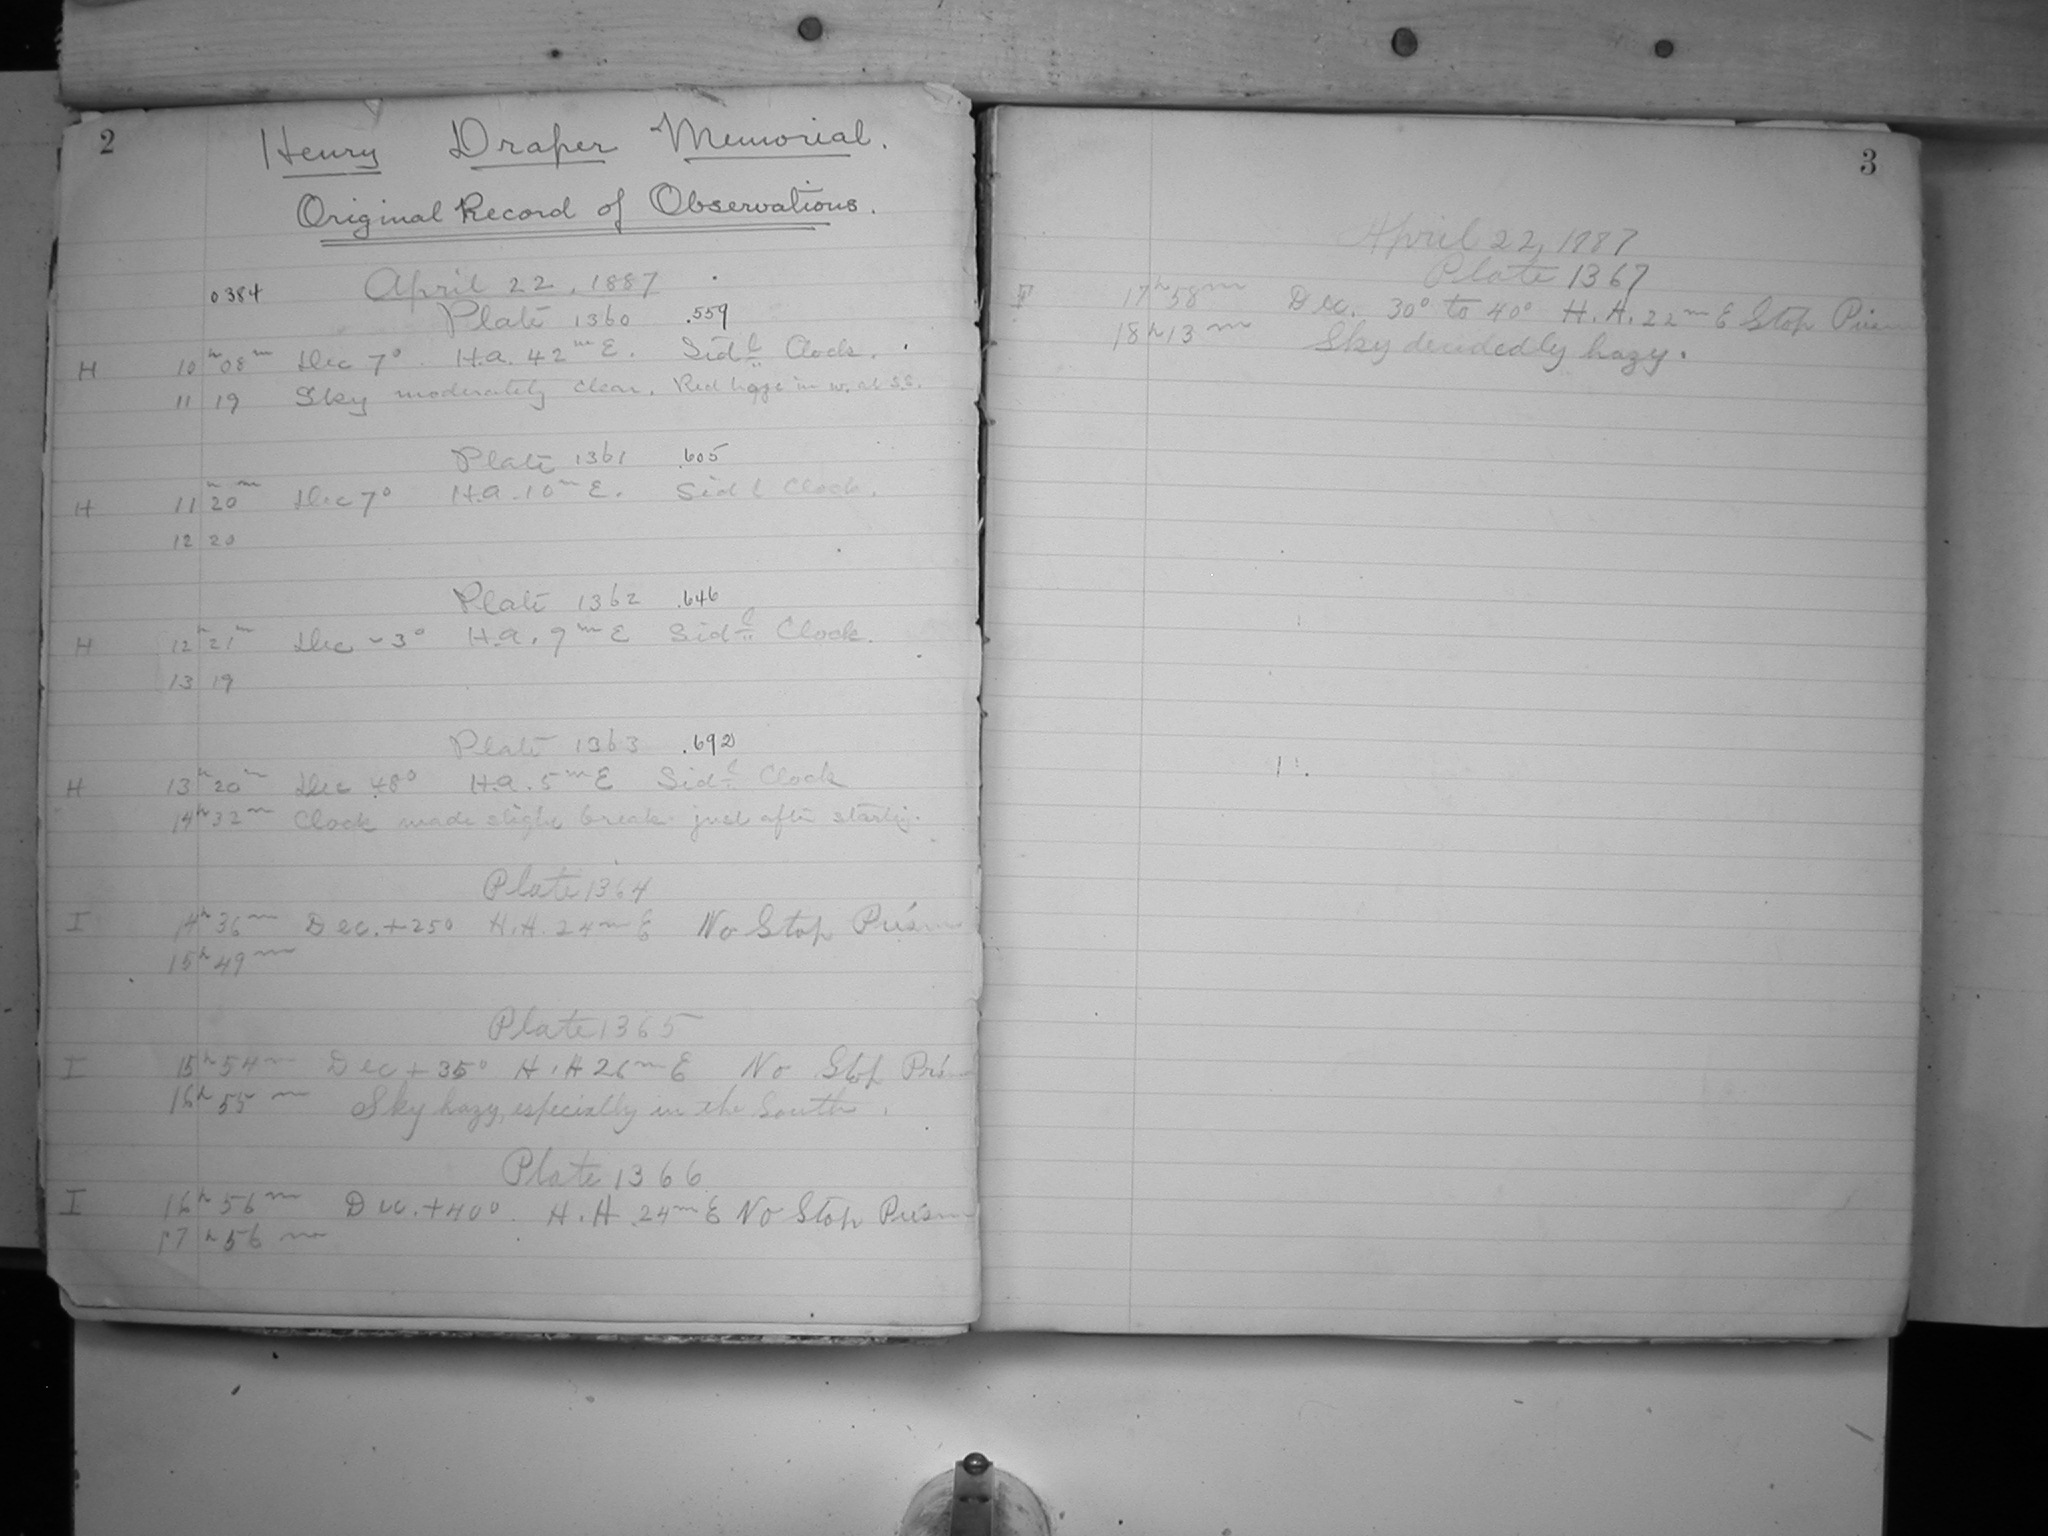 2
Henry Draper Memorial.
Original Record of Observations.
0384 April 22, 1887
Plate 1360 .559
H 10h 08m Dec 7° H.a. 42m E. Sidl Clock.
11 19 Sky moderately clear. Red haze in w. at s.s.
Plate 1361 .605
H 11h 20m Dec 7° H.a. 10m E. Sidl Clock.
12 20
Plate 1362 .646
H 12h 21m Dec -3° H.a. 9m E Sidl Clock.
13 19
Plate 1363 .692
H 13h 20m Dec 48° H.a. 5m E Sidl Clock
14h 32m Clock made slight break just after starting.
Plate 1364
I 14h 36m Dec. +25° H.A. 24m E No Stop Prism
15h 49m
Plate 1365
I 15h 54m Dec +35° H.A 26m E No Stop Prism
16h 55m Sky hazy, especially in the South.
Plate 1366
I 16h 56m Dec. +40° H.A. 24m E No Stop Prism
17h 56m
3
April 22, 1887
Plate 1367
17h 58m Dec. 30° to 40° H.A. 22m E Stop Prism
18h 13m Sky decidedly hazy.